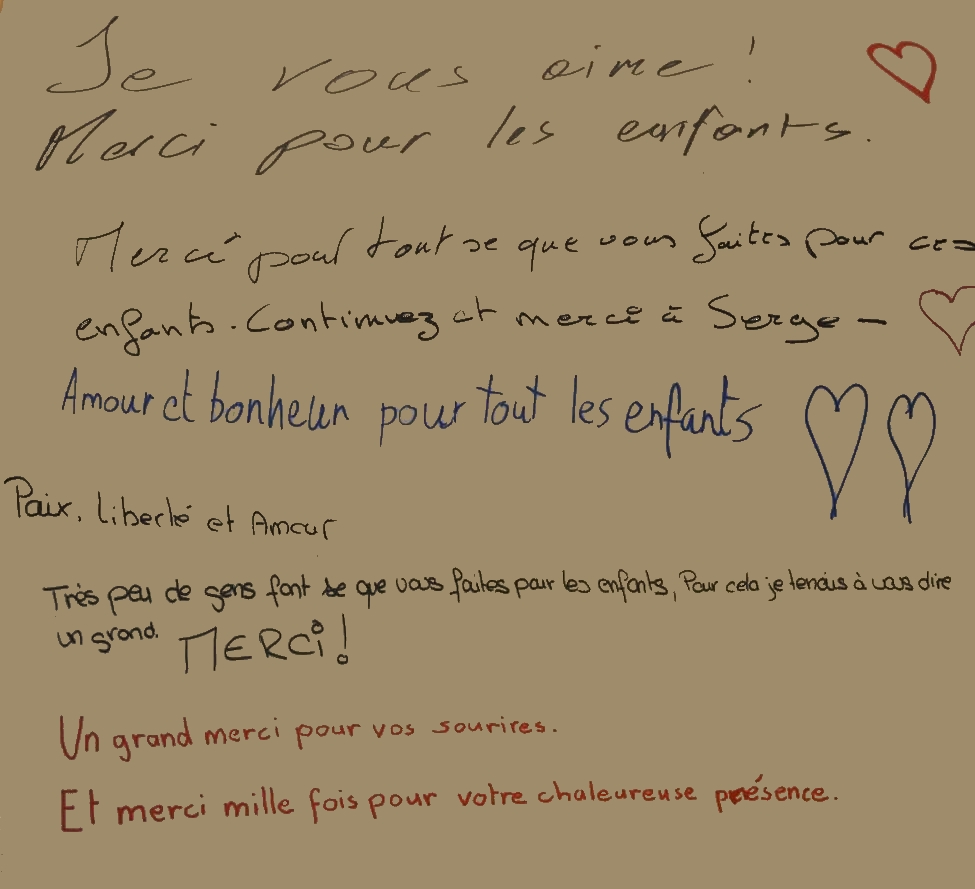 Je vous aime !
Merci pour les enfants.
Merci pour tout se que vous faites pour ces
enfants. Continuez et merci à Serge -
Amour et bonheur pour tout les enfants
Paix, liberté et Amour
Très peu de gens font se que vous faites pour les enfants, Pour cela je tenais à vous dire
un grand.
MERCi !
Un grand merci pour vos sourires.
Et merci mille fois pour votre chaleureuse présence.